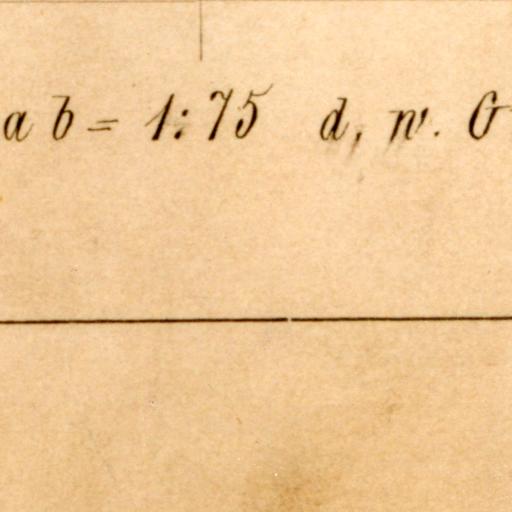 ab = 1:75 d. w. G